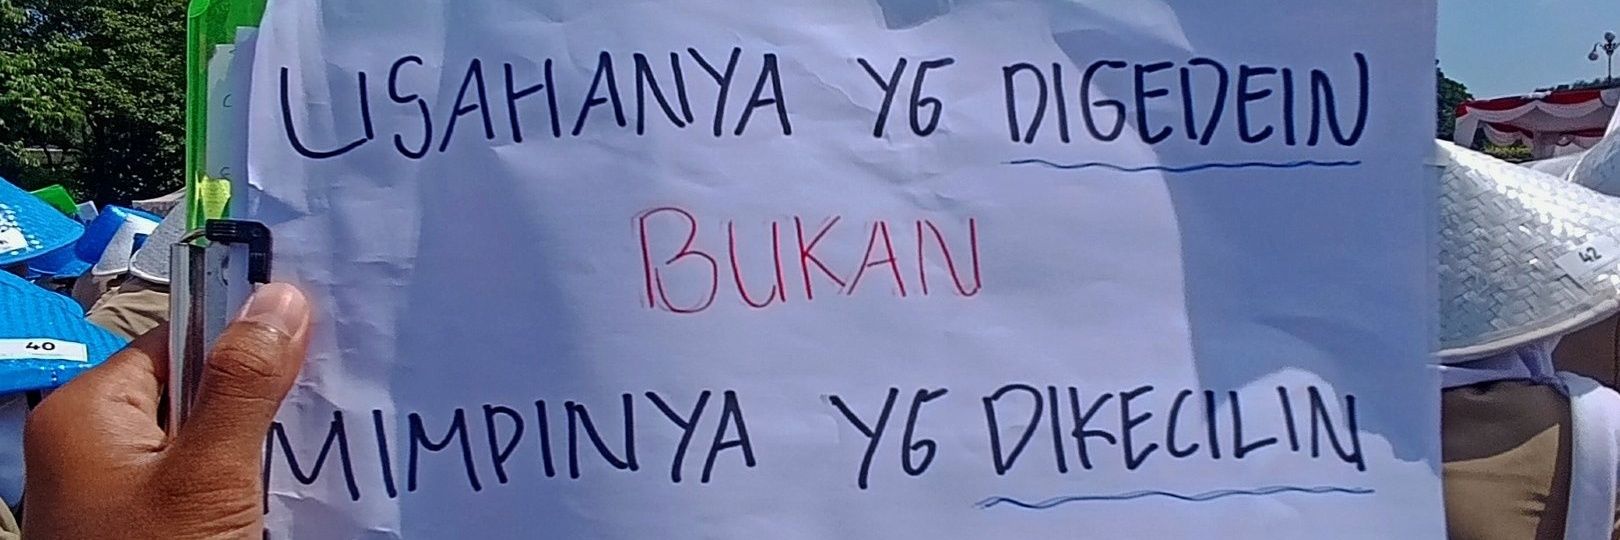 USAHANYA YG DIGEDEIN
BUKAN
MIMPINYA YG DIKECILIN
40
42